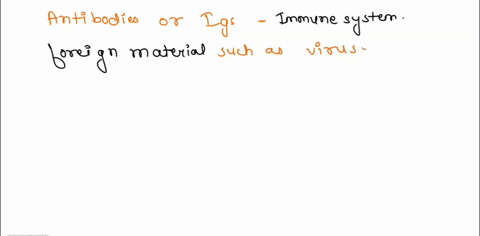 Antibodies or Igs - Immune system.
foreign material such as virus.